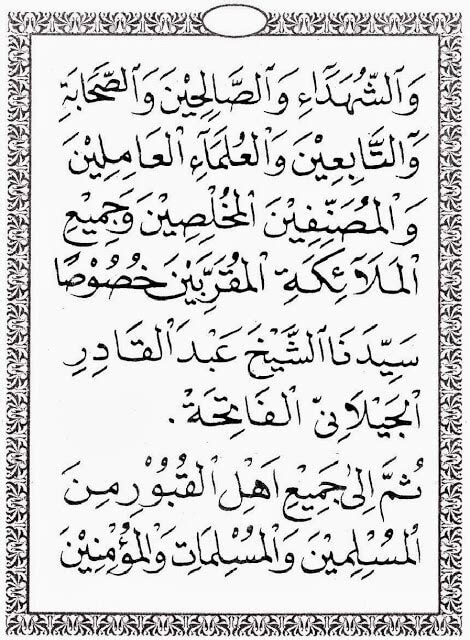 وَالشُّهَدَآءِ وَالصَّالِحِيْنَ وَالصَّحَابَةِ
وَالتَّابِعِيْنَ وَالْعُلَمَآءِ الْعَامِلِيْنَ
وَالْمُصَنِّفِيْنَ الْمُخْلِصِيْنَ وَجَمِيْعِ
الْمَلَآئِكَةِ الْمُقَرَّبِيْنَ خُصُوْصًا
سَيِّدَنَا الشَّيْخَ عَبْدَ الْقَادِرِ
الْجَيْلَانِيّ الْفَاتِحَةْ.
ثُمَّ اِلٰى جَمِيْعِ اَهْلِ الْقُبُوْرِ مِنَ
الْمُسْلِمِيْنَ وَالْمُسْلِمَاتِ وَالْمُؤْمِنِيْنَ